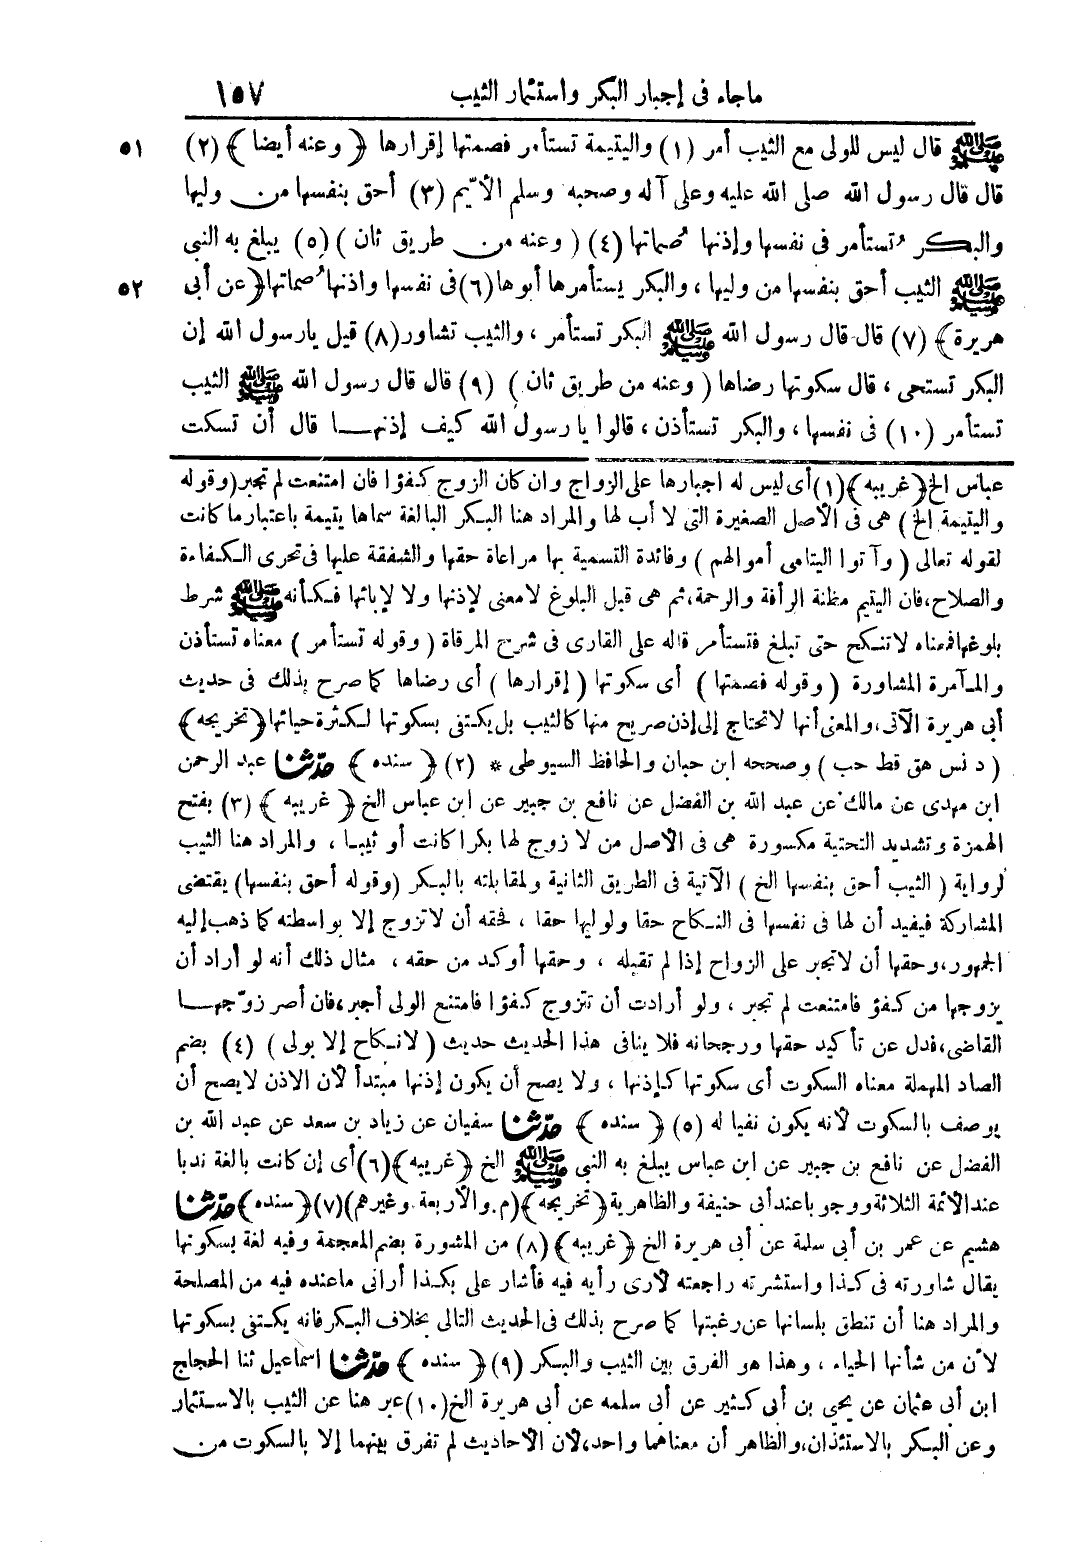 ماجاء فى إجبار البكر واستئمار الثيب ١٥٧
ﷺ قال ليس للولى مع الثيب أمر (١) واليتيمة تستأمر فصمتها إقرارها ﴿ وعنه أيضا ﴾ (٢) ٥١
قال قال رسول الله صلى الله عليه وعلى آله وصحبه وسلم الأيّم (٣) أحق بنفسها من وليها
والبكر تُستأمر فى نفسها وإذنها صُماتها (٤) ( وعنه من طريق ثان ) (٥) يبلغ به النبى
ﷺ الثيب أحق بنفسها من وليها ، والبكر يستأمرها أبوها (٦) فى نفسها واذنها صُماتها ﴿ عن أبى ٥٢
هريرة ﴾ (٧) قال قال رسول الله ﷺ البكر تستأمر ، والثيب تشاور (٨) قيل يارسول الله إن
البكر تستحى ، قال سكوتها رضاها ( وعنه من طريق ثان ) (٩) قال قال رسول الله ﷺ الثيب
تستأمر (١٠) فى نفسها ، والبكر تستأذن ، قالوا يارسول الله كيف إذنها قال أن تسكت
عباس الخ ﴿ غريبه ﴾ (١) أى ليس له اجبارها على الزواج وان كان الزوج كفؤا فان امتنعت لم تجبر (وقوله
واليتيمة الخ ) هى فى الأصل الصغيرة التى لا أب لها والمراد هنا البكر البالغة سماها يتيمة باعتبار ما كانت
لقوله تعالى ( وآتوا اليتامى أموالهم ) وفائدة التسمية بها مراعاة حقها والشفقة عليها فى تحرى الكفاءة
والصلاح، فان اليتيم مظنة الرأفة والرحمة، ثم هى قبل البلوغ لامعنى لإذنها ولا لإبائها فكأنه ﷺ شرط
بلوغها فمعناه لاتنكح حتى تبلغ فتستأمر قاله على القارى فى شرح المرقاة ( وقوله تستأمر ) معناه تستأذن
والمـآمرة المشاورة ( وقوله فصمتها ) أى سكوتها ( إقرارها ) أى رضاها كما صرح بذلك فى حديث
أبى هريرة الآتى، والمعنى أنها لاتحتاج إلى إذن صريح منها كالثيب بل يكتفى بسكوتها لكثرة حيائها ﴿ تخريجه ﴾
( د نس هق قط حب ) وصححه ابن حبان والحافظ السيوطى * (٢) ﴿ سنده ﴾ حدّثنا عبد الرحمن
ابن مهدى عن مالك عن عبد الله بن الفضل عن نافع بن جبير عن ابن عباس الخ ﴿ غريبه ﴾ (٣) بفتح
الهمزة وتشديد التحتية مكسورة هى فى الأصل من لا زوج لها بكرا كانت أو ثيبا ، والمراد هنا الثيب
لرواية ( الثيب أحق بنفسها الخ ) الآتية فى الطريق الثانية ولمقابلته بالبكر (وقوله أحق بنفسها) يقتضى
المشاركة فيفيد أن لها فى نفسها فى النكاح حقا ولوليها حقا ، فحقه أن لاتزوج إلا بواسطته كما ذهب إليه
الجمهور، وحقها أن لاتجبر على الزواج إذا لم تقبله ، وحقها أوكد من حقه ، مثال ذلك أنه لو أراد أن
يزوجها من كفؤ فامتنعت لم تجبر ، ولو أرادت أن تتزوج كفؤا فامتنع الولى أجبر، فان أصر زوّجها
القاضى، فدل عن تأكيد حقها ورجحانه فلا ينافى هذا الحديث حديث ( لانكاح إلا بولى ) (٤) بضم
الصاد المهملة معناه السكوت أى سكوتها كإذنها ، ولا يصح أن يكون إذنها مبتدأ لأن الاذن لايصح أن
يوصف بالسكوت لأنه يكون نفيا له (٥) ﴿ سنده ﴾ حدّثنا سفيان عن زياد بن سعد عن عبد الله بن
الفضل عن نافع بن جبير عن ابن عباس يبلغ به النبى ﷺ الخ ﴿ غريبه ﴾ (٦) أى إن كانت بالغة ندبا
عند الأئمة الثلاثة ووجوبا عند أبى حنيفة والظاهرية ﴿ تخريجه ﴾ (م . والأربعة . وغيرهم) (٧) ﴿ سنده ﴾ حدّثنا
هشيم عن عمر بن أبى سلمة عن أبى هريرة الخ ﴿ غريبه ﴾ (٨) من المشورة بضم المعجمة وفيه لغة بسكوتها
يقال شاورته فى كذا واستشرته راجعته لأرى رأيه فيه فأشار على بكذا أرانى ماعنده فيه من المصلحة
والمراد هنا أن تنطق بلسانها عن رغبتها كما صرح بذلك فى الحديث التالى بخلاف البكر فانه يكتفى بسكوتها
لأن من شأنها الحياء ، وهذا هو الفرق بين الثيب والبكر (٩) ﴿ سنده ﴾ حدّثنا اسماعيل ثنا الحجاج
ابن أبى عثمان عن يحيى بن أبى كثير عن أبى سلمه عن أبى هريرة الخ (١٠) عبر هنا عن الثيب بالاستئمار
وعن البكر بالاستئذان، والظاهر أن معناهما واحد، لأن الأحاديث لم تفرق بينهما إلا بالسكوت من